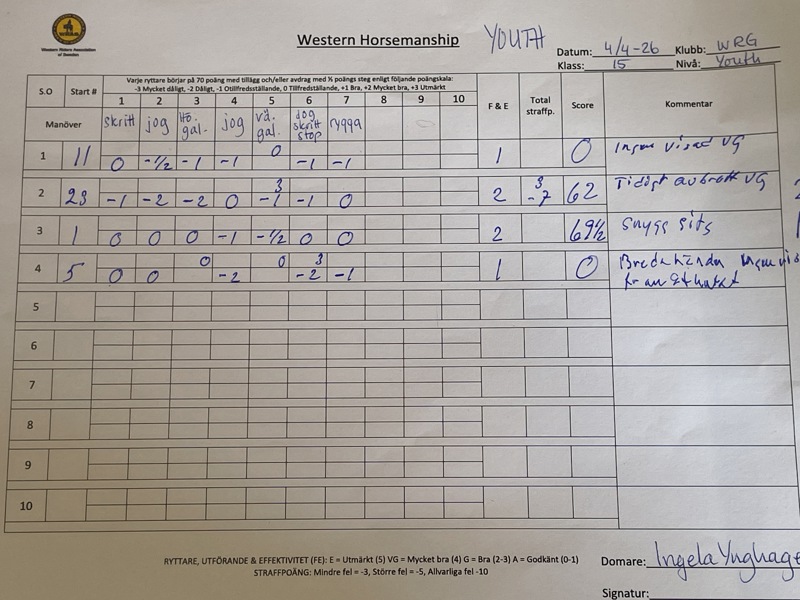 Western Riders Association of Sweden
Western Horsemanship YOUTH
Datum: 4/4-26 Klubb: WRG
Klass: 15 Nivå: Youth
S.O Start # Varje ryttare börjar på 70 poäng med tillägg och/eller avdrag med ½ poängs steg enligt följande poängskala: F & E Total straffp. Score Kommentar
-3 Mycket dåligt, -2 Dåligt, -1 Otillfredsställande, 0 Tillfredsställande, +1 Bra, +2 Mycket bra, +3 Utmärkt
1 2 3 4 5 6 7 8 9 10
Manöver skritt jog hö. gal. jog vä. gal. jog skritt stop rygga
0
1 11 0 -1/2 -1 -1 -1 -1 1 0 Ingen visad VG
3 3
2 23 -1 -2 -2 0 -1 -1 0 2 -7 62 Tidigt avbrott VG
3 1 0 0 0 -1 -1/2 0 0 2 69½ snygg sits
0 0 3
4 5 0 0 -2 -2 -1 1 0 Breda händer Ingen
5
6
7
8
9
10
RYTTARE, UTFÖRANDE & EFFEKTIVITET (FE): E = Utmärkt (5) VG = Mycket bra (4) G = Bra (2-3) A = Godkänt (0-1)
STRAFFPOÄNG: Mindre fel = -3, Större fel = -5, Allvarliga fel -10
Domare: Ingela
Signatur: